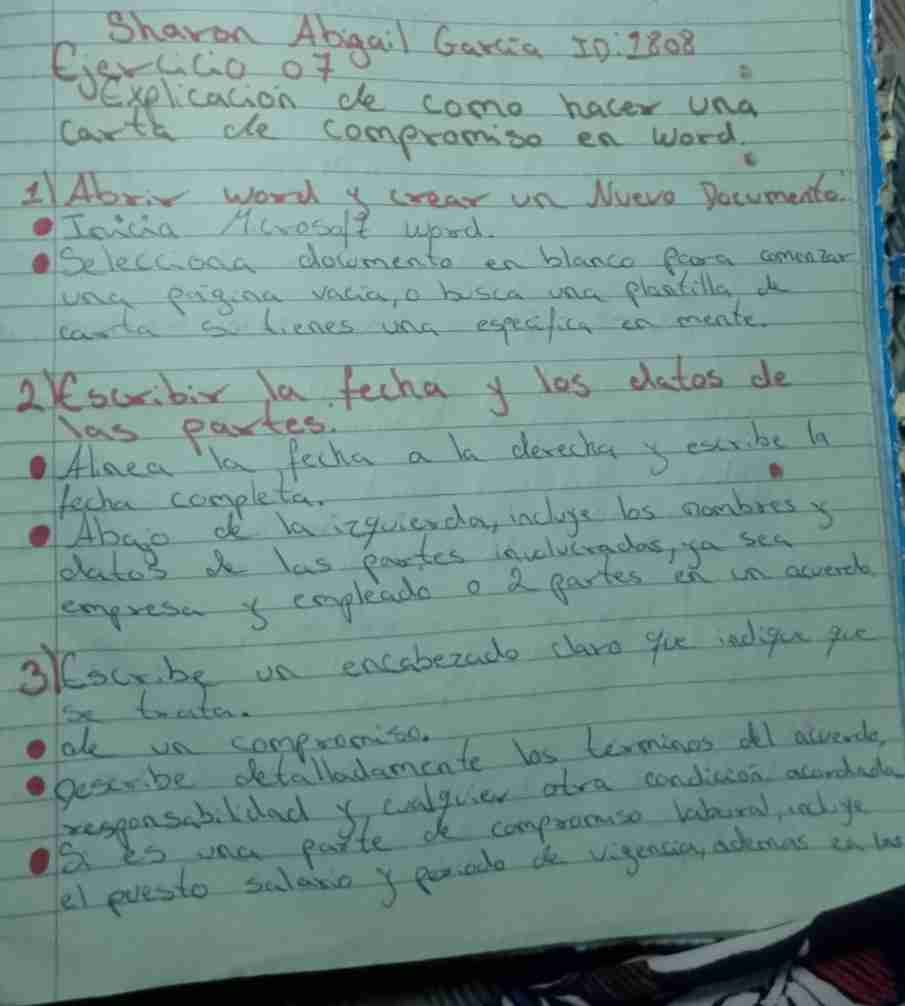 Sharon Abigail Garcia ID:1808
Ejercicio 07
Explicación de como hacer una
carta de compromiso en word.
1) Abrir word y crear un Nuevo Documento.
• Inicia Microsoft word.
• Selecciona documento en blanco para comenzar
una página vacia, o busca una plantilla de
carta si tienes una especifica en mente.
2) Escribir la fecha y los datos de
las partes.
• Alinea la fecha a la derecha y escribe la
fecha completa.
• Abajo de la izquierda, incluye los nombres y
datos de las partes involucradas, ya sea
empresa y empleado o 2 partes en un acuerdo
3) Escribe un encabezado claro que indique que
se trata.
• de un compromiso.
• Describe detalladamente los terminos del acuerdo,
responsabilidad y, cualquier otra condición acordada
• Si es una parte de compromiso laboral, incluye
el puesto salario y periodo de vigencia, ademas en las